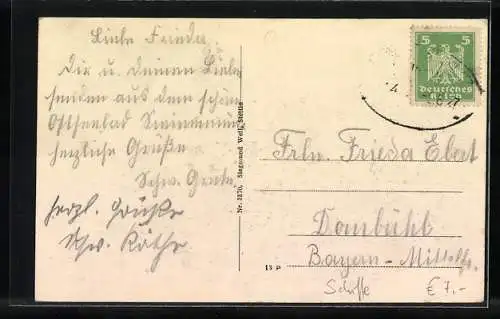 Liebe Frieda.
Dir u. deinen Lieben
senden aus dem schönen
Ostseebad Swinemünde
herzliche Grüße
Schw. Grete.
herzl. Grüße
Schw. Käthe
Nr. 3270. Siegmund Weil, Stettin
13 P
5 5
Deutsches
Reich
Frln. Frieda Ebert
Dombühl
Bayern - Mittelfr.
€ 7.-